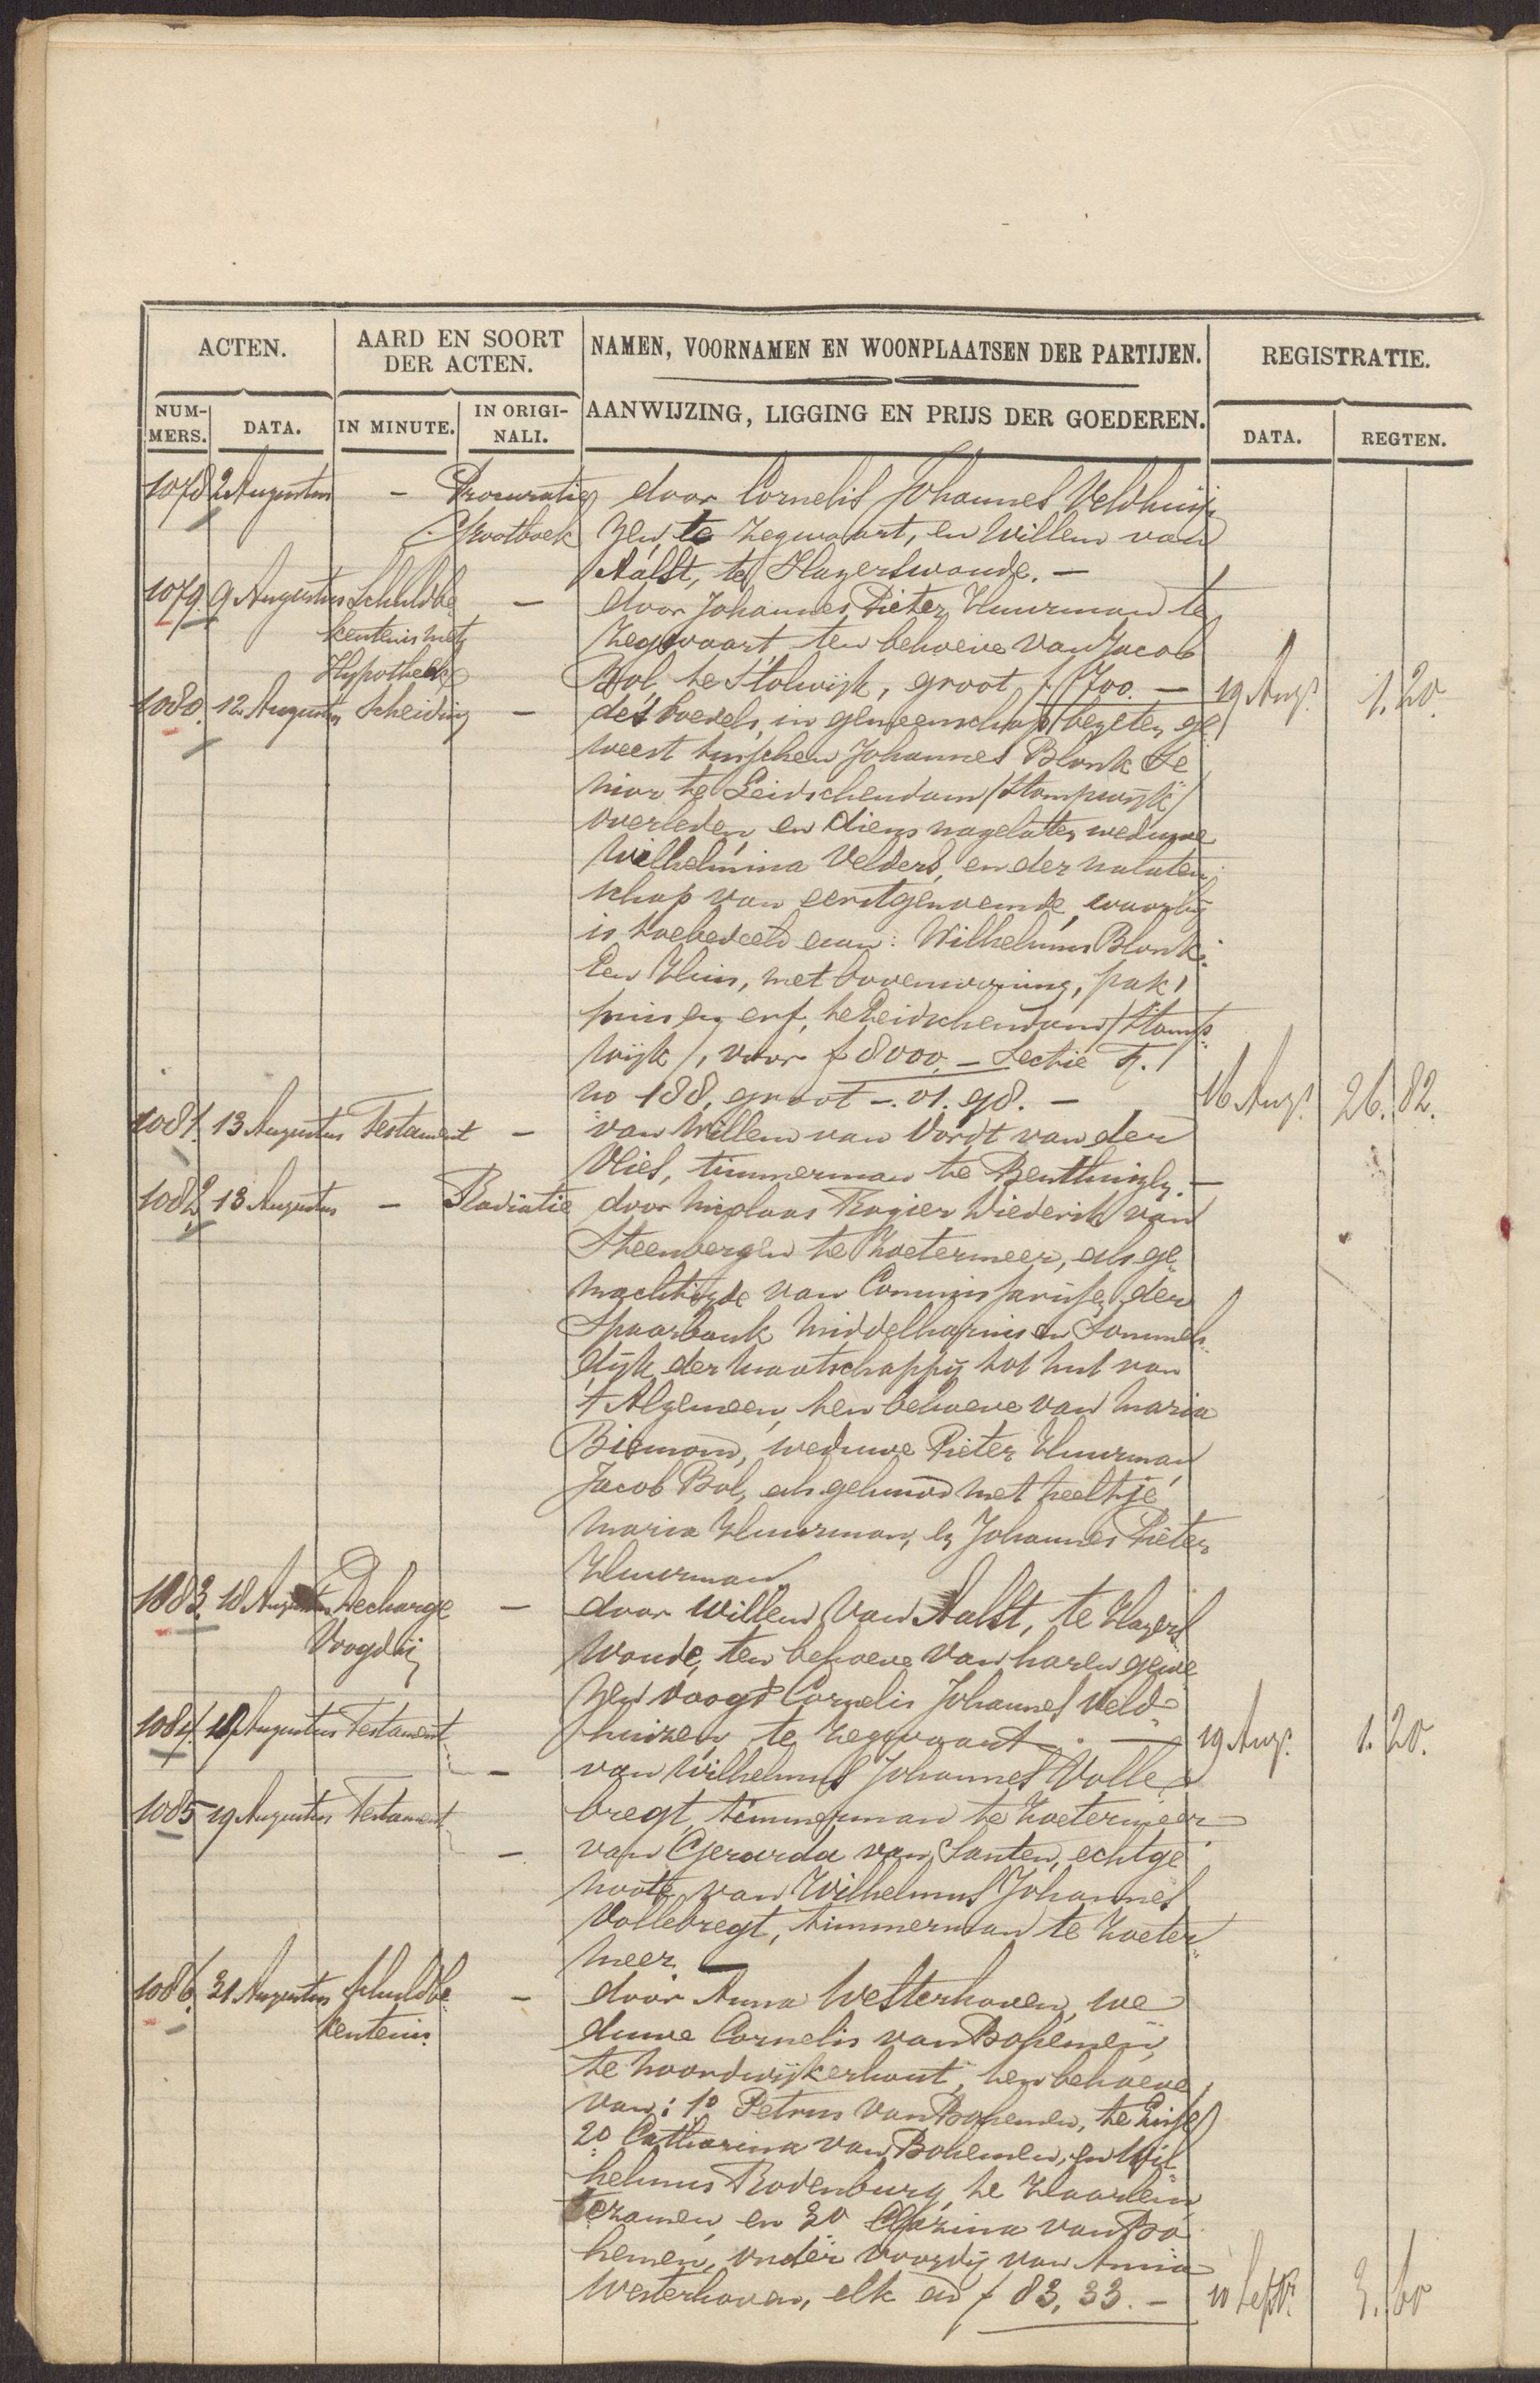 ACTEN.
AARD EN SOORT
DER ACTEN.
NAMEN, VOORNAMEN EN WOONPLAATSEN DER PARTIJEN.
AANWIJZING, LIGGING EN PRIJS DER GOEDEREN.
REGISTRATIE.
NUM-
MERS.
DATA.
IN MINUTE.
IN ORIGI-
NALI.
DATA.
REGTEN.
1078 2 Augustus - Procuratie door Cornelis Johannes Veldhuij
Grootboek zen, te Zegwaart, en Willem van
Aalst, te Hazerswoude. -
1079. 9 Augustus Schuldbe - door Johannes Pieter Huurman te
kentenis met Zegwaart, ten behoeve van Jacob
Hypotheek Bol te Stolwijk, groot f 1700. - 19 Augs. 1. 20.
1080. 12 Augustus Scheiding - des boedels, in gemeenschap bezeten ge
weest tusschen Johannes Blonk Se
nior te Leidschendam /Stompwijk/
overleden, en diens nagelaten weduwe
Wilhelmina Velders, en der nalaten
schap van eerstgenoemde, waarbij
is toebedeeld aan: Wilhelmus Blonk:
Een Huis, met bovenwoning, pak
huis en erf, te Leidschendam /Stomp
wijk/, voor f 8000, - Sectie F.
no 188, groot -. 01. 98. - 16 Augs. 26. 82.
1081. 13 Augustus Testament - van Willem van Vordt van der
Vlies, timmerman te Benthuizen. -
1082. 13 Augustus - Radiatie door Nicolaas Rogier Diederik van
Steenbergen te Zoetermeer, als ge
machtigde van Commissarissen der
Spaarbank Middelharnis en Sommels
dijk der Maatschappij tot Nut van
't Algemeen, ten behoeve van Maria
Biemond, weduwe Pieter Huurman,
Jacob Bol, als gehuwd met Neeltje
Maria Huurman, en Johannes Pieter
Huurman
1083. 18 Augustus Decharge - door Willem van Aalst, te Hazers
Voogdij woude, ten behoeve van haren gewe
zen voogd Cornelis Johannes Veld-
huizen, te Zegwaart. - 19 Augs. 1. 20.
1084. 19 Augustus Testament - van Wilhelmus Johannes Volle
bregt, timmerman te Zoetermeer
1085 19 Augustus Testament - van Gerarda van Santen, echtge
noote van Wilhelmus Johannes
Vollebregt, timmerman te Zoeter
meer. -
1086. 31 Augustus Schuldbe - door Anna Westerhoven, we
kentenis duwe Cornelis van Bohemen,
te Noordwijkerhout, ten behoeve
van: 1o Petrus van Bohemen, te Lisse
2o Catharina van Bohemen, en Wil
helmus Rodenburg, te Haarlem,
tezamen, en 3o van Bo
hemen, onder voogdij van Anna
Westerhoven, elk ad f 83, 33. - 10 Septr. 3. 60